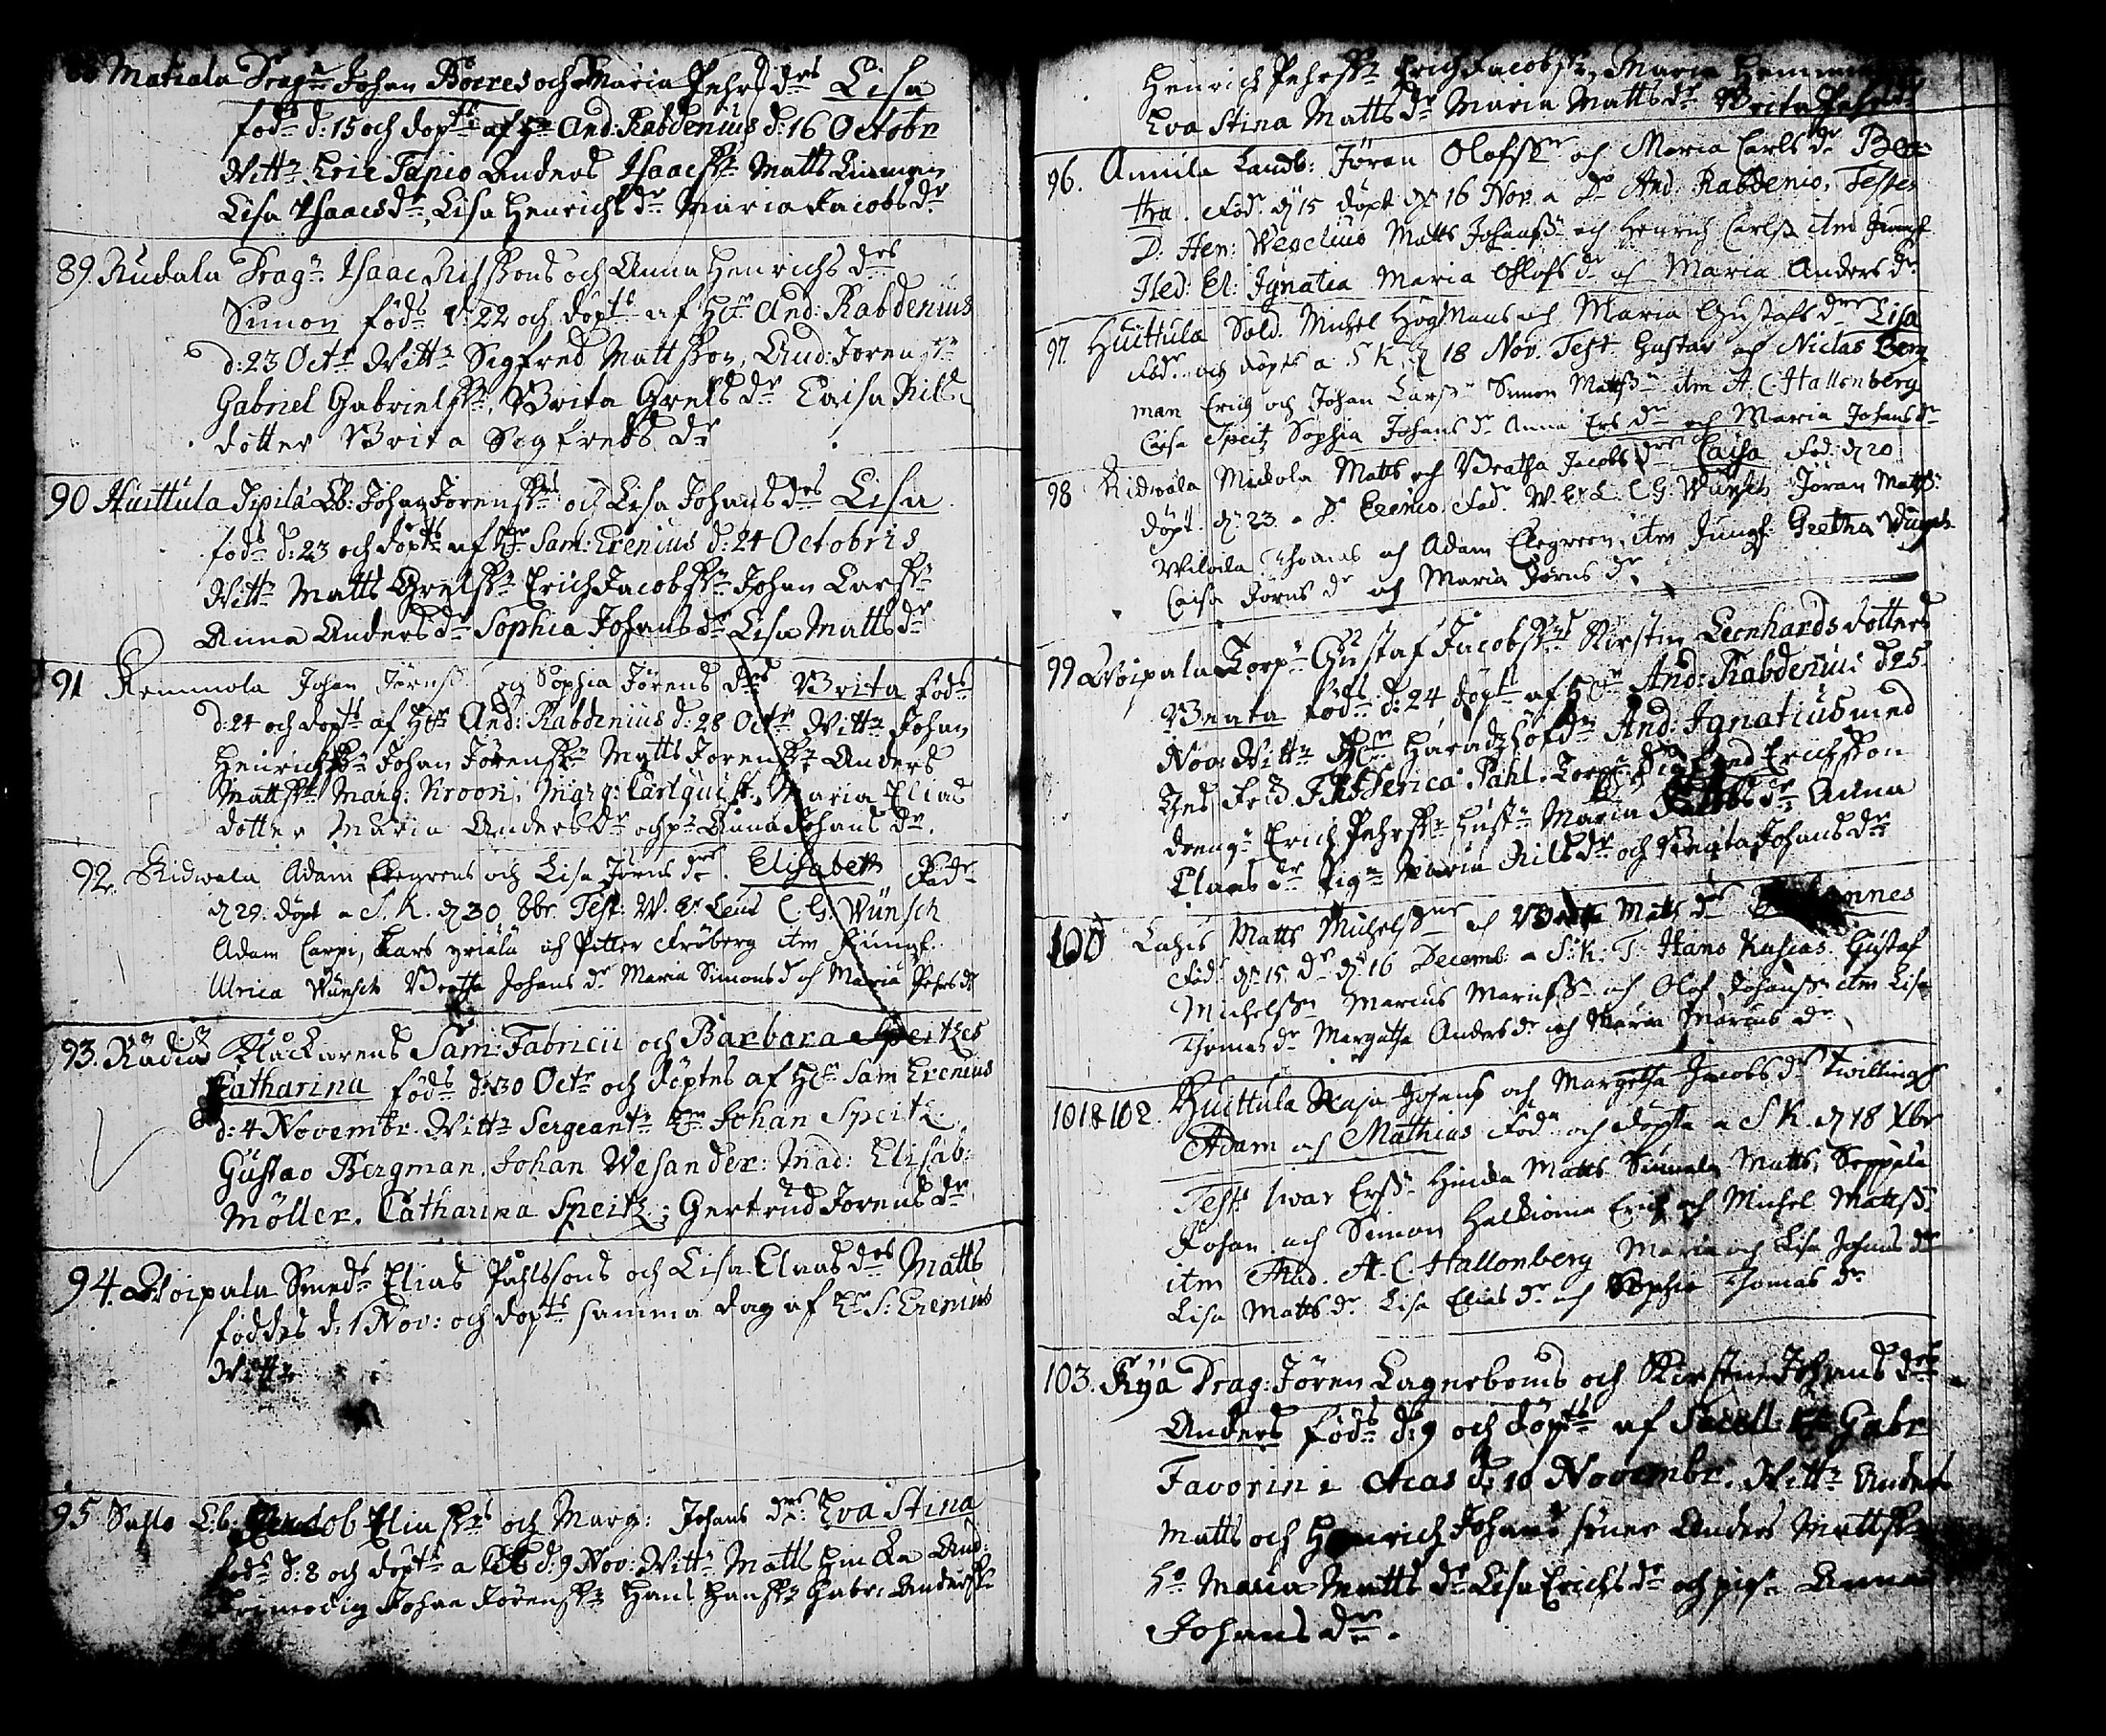 Matiala Dragn Johan Boeres och Maria Pehrs drs Lisa
föds d: 15 och döpts af Hr And: Rabdenius d: 16 Octobr
Vittn Eric Tapio Anders Isaacssn Matts
Lisa Isaacsdr, Lisa Henrichs dr Maria Jacobsdr
89. Kudala Dragn Isaac och Anna Henrichs drs
Simon föds d: 22 och döpts af Hr And: Rabdenius
d: 23 Octr Vittn Sigfred Mattsson, And: Jörenssn
Gabriel Gabrielssn, Brita Grels dr Caisa Nils
dotter Brita Sigfreds dr
90 Huittula Sipilä Lb: Johan Jörenssns och Lisa Johans drs Lisa
föds d: 23 och döpts af Hr Sam: Erenius d: 24 Octobris
Vittn Matts Grelssn Erich Jacobssn Johan Larssn
Anna Anders dr Sophia Johans dr Lisa Matts dr
91 Remmola Johan Jörnss och Sophia Jörens drs Brita föds
d: 24 och döpts af Hr And: Rabdenius d: 28 Octr Vittn Johan
Henrichssn Johan Jörenssn Matts Jörenssn Anders
Mattssn Marg: Kroon, Marg: Carlquist, Maria Elias
dotter Maria Anders dr och Anna Johans dr.
92. Ridwala Adam Ekegrens och Lisa Jörns dr. Elisabeth Föd
d 29. döpt a S. K. d 30. 8br. Test: W. Er Leus C. G. Wünsch
Adam Carpi, Lars yriälä och Petter Fröberg itm Jungf.
Ulrica Wünsch Beatha Johans dr Maria Simons dr och Maria Pehrs dr
93. Rädiö Klåckarens Sam: Fabricii och Barbara Speitzes
Catharina föds d: 30 Octr och döptes af Hr Sam Erenius
d: 4 Novembr. Vittn Sergeantn Hr Johan Speitz
Gustav Bergman. Johan Wesander: Mad: Elisab:
Möller. Catharina Speitz; Gertrud Jörens dr
94. Woipala Smeds Elias Påhlssons och Lisa Claas drs Matts
föddes d: 1 Nov: och döpts samma dag af Hr S: Erenius
Vittn
95 Sahlo Lb: Jacob Eliassns och Marg: Johans drs Eva Stina
föds d: 8 och döpts a d: 9 Nov: Vittn Matts Hucka And:
Frimodig Johan Jörenssn Hans Hanssn Gabr: Anderssn
Henrich Pehrssn Erich Jacobssn, Maria
Eva Stina Matts dr Maria Matts dr Brita
96. Annila Landb: Jöran Olofssn och Maria Carls dr Bea-
tha. Föd. d 15 döpt d 16 Nov. a Dn And. Rabdenio. Testes
D. Hen: Weselius Matts Johanssn och Henrich Carlss itm Jungf
Hed: El: Ignatia Maria Olofs dr och Maria Anders dr
97. Huittula Sold. Michel Högmans och Maria Gustafs dr Lisa
Föd. och döpt a S K. d 18 Nov. Test. Gustav och Niclas Berg-
man Erich och Johan Larss Simon Mattss itm A. C. Hallonberg
Caisa Speitz Sophia Johans dr Anna Ers dr och Maria Johans dr
98 Ridwala Mickola Matts och Beatha Jacobs dr Caisa Föd: d 20
döpt. d. 23. a Dn Erenio. W. Er L. C G. Wünsch Jöran Mattss
Thomas och Adam Ekegreen, itm Jungf: Gretha Wünsch
Caisa Jörns dr och Maria Jörns dr.
99 Woipala Torpn Gustaf Jacobssns Kirstin Leenhards dotters
Beata föds d: 24 döpts af Hr And: Rabdenius d 25
Nov: Vittn Hr Häradzhöfdn And: Ignatius med
Des Fru Fridrica Pahl. Torpn Sigfred Ericsson
drengn Erich Pehrssn hustn Maria Anna
Claas dr pign Maria Nils dr och Beata Johans dr
100 Lahis Matts Michelssn och Matts dr
Föd. d. 15. dn d 16 Decemb. a S: K: T. Hans Gustaf
Michelssn Marcus Maricssn och Olof Johanss itm Lisa
Thomas dr Margetha Anders dr och Maria Marcus dr
101 & 102. Huittula Kaja Johans och Margetha Jacobs dr twillingar
Adam och Mathias Föd: och döpta a S K. d 18 Xbr
Test: Iwar Erss Hinda Matts Matts, Seppälä
Johan och Simon Erich och Michel Mattss.
itm Mad. A. C. Hallonberg Maria och Lisa Johans dr
Lisa Matts dr Lisa Elias dr och Sophia Thomas dr
103. Kyä Drag: Jören Lagerboms och Kirstin Johans drs
Anders föds d: 9 och döpts af Gabr
Favorin i d: 10 Novembr. Vittn Anders
Matts och Henrich Johans söner Anders Mattssn
Ho Maria Matts dr Lisa Erichs dr och pign Anna
Johans dr.